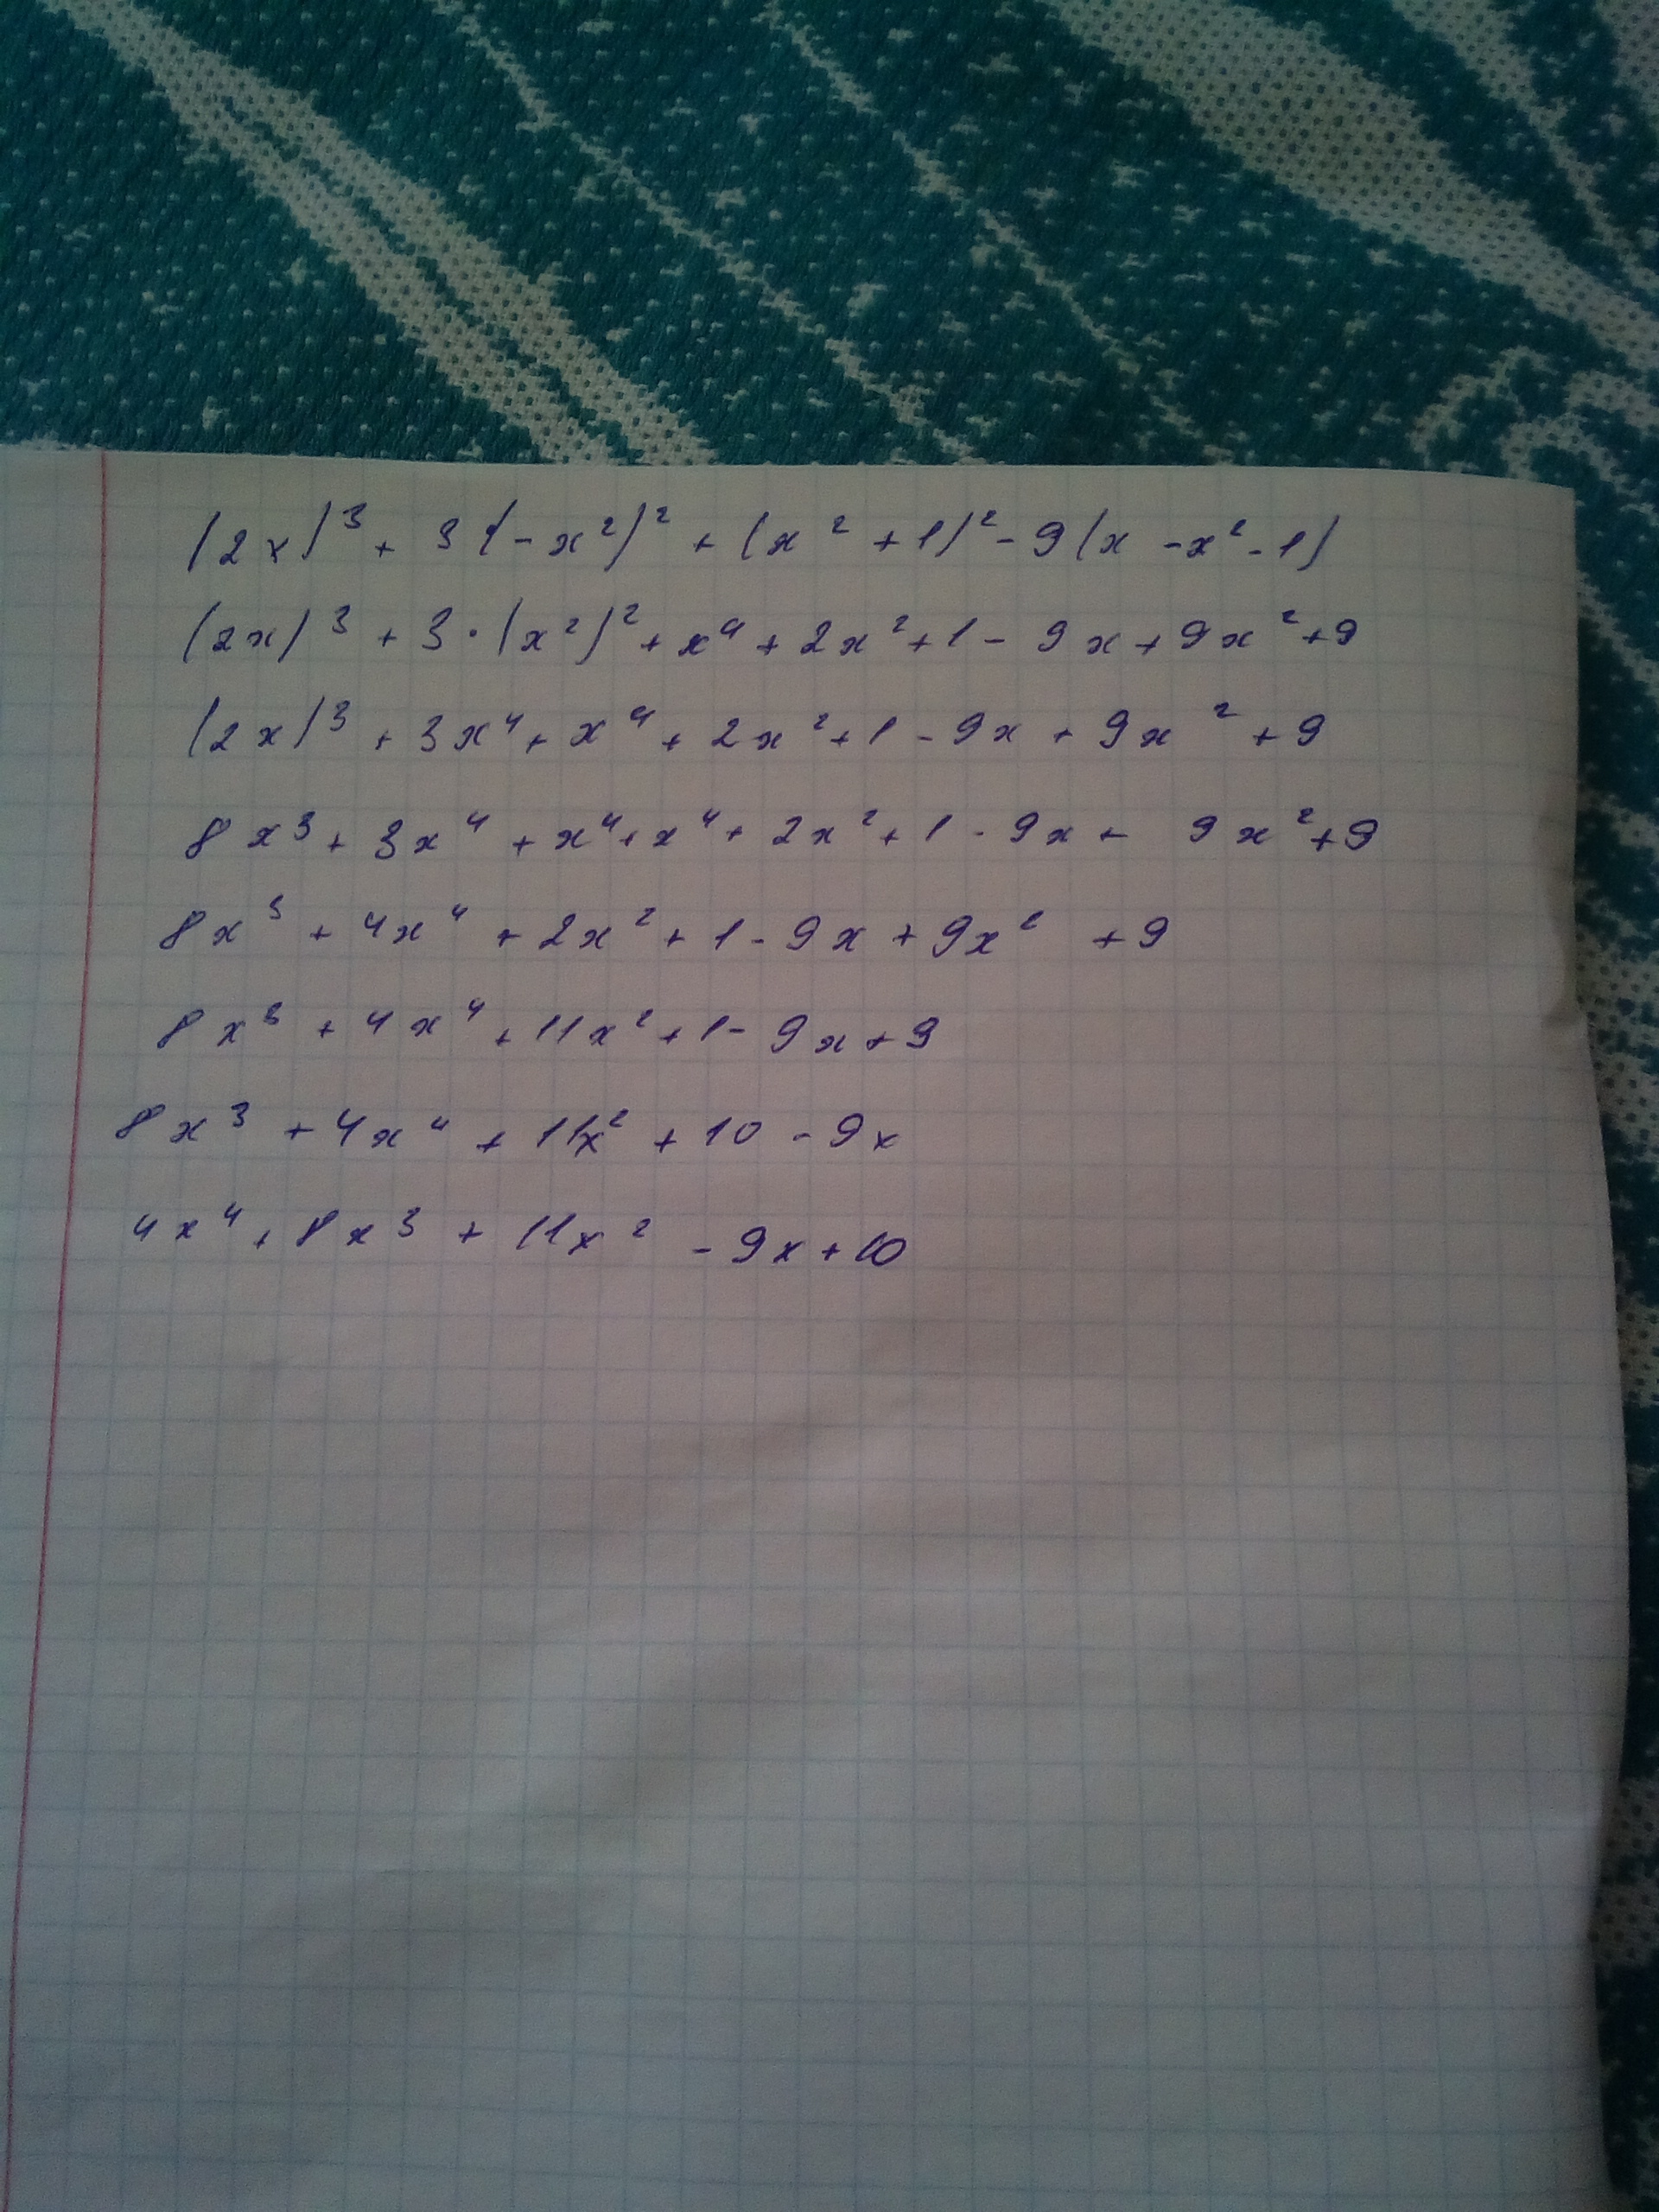 (2x)³ + 3(-x²)² + (x² + 1)² - 9(x - x² - 1)
(2x)³ + 3·(x²)² + x⁴ + 2x² + 1 - 9x + 9x² + 9
(2x)³ + 3x⁴ + x⁴ + 2x² + 1 - 9x + 9x² + 9
8x³ + 3x⁴ + x⁴ + x⁴ + 2x² + 1 - 9x + 9x² + 9
8x³ + 4x⁴ + 2x² + 1 - 9x + 9x² + 9
8x³ + 4x⁴ + 11x² + 1 - 9x + 9
8x³ + 4x⁴ + 11x² + 10 - 9x
4x⁴ + 8x³ + 11x² - 9x + 10